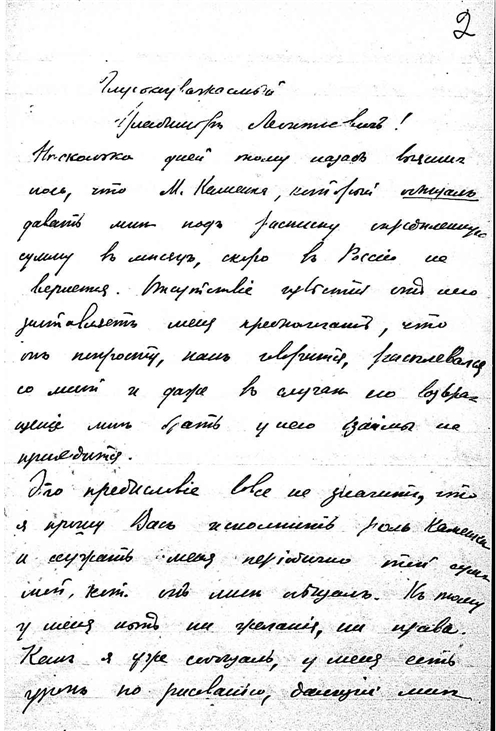 2
Глубокоуважаемый
Владимиръ Леонтьевичъ!
Нѣсколько дней тому назадъ выяснилось, что М. Каменка, который обѣщалъ
давать мнѣ подъ расписку опредѣленную
сумму въ мѣсяцъ, скоро въ Россію не
вернется. Отсутствіе извѣстій отъ него
заставляетъ меня предполагать, что
онъ попросту, какъ говорится, расплевался
со мной и даже въ случаѣ его возвращенія мнѣ брать у него взаймы не
придется.
Это предисловіе вовсе не значитъ, что
я прошу Васъ исполнить роль Каменки
и ссужать меня періодично той суммой, кот. онъ мнѣ обѣщалъ. Къ тому
у меня нѣтъ ни желанія, ни права.
Какъ я уже сообщалъ, у меня есть
урокъ по рисованію, дающій мнѣ